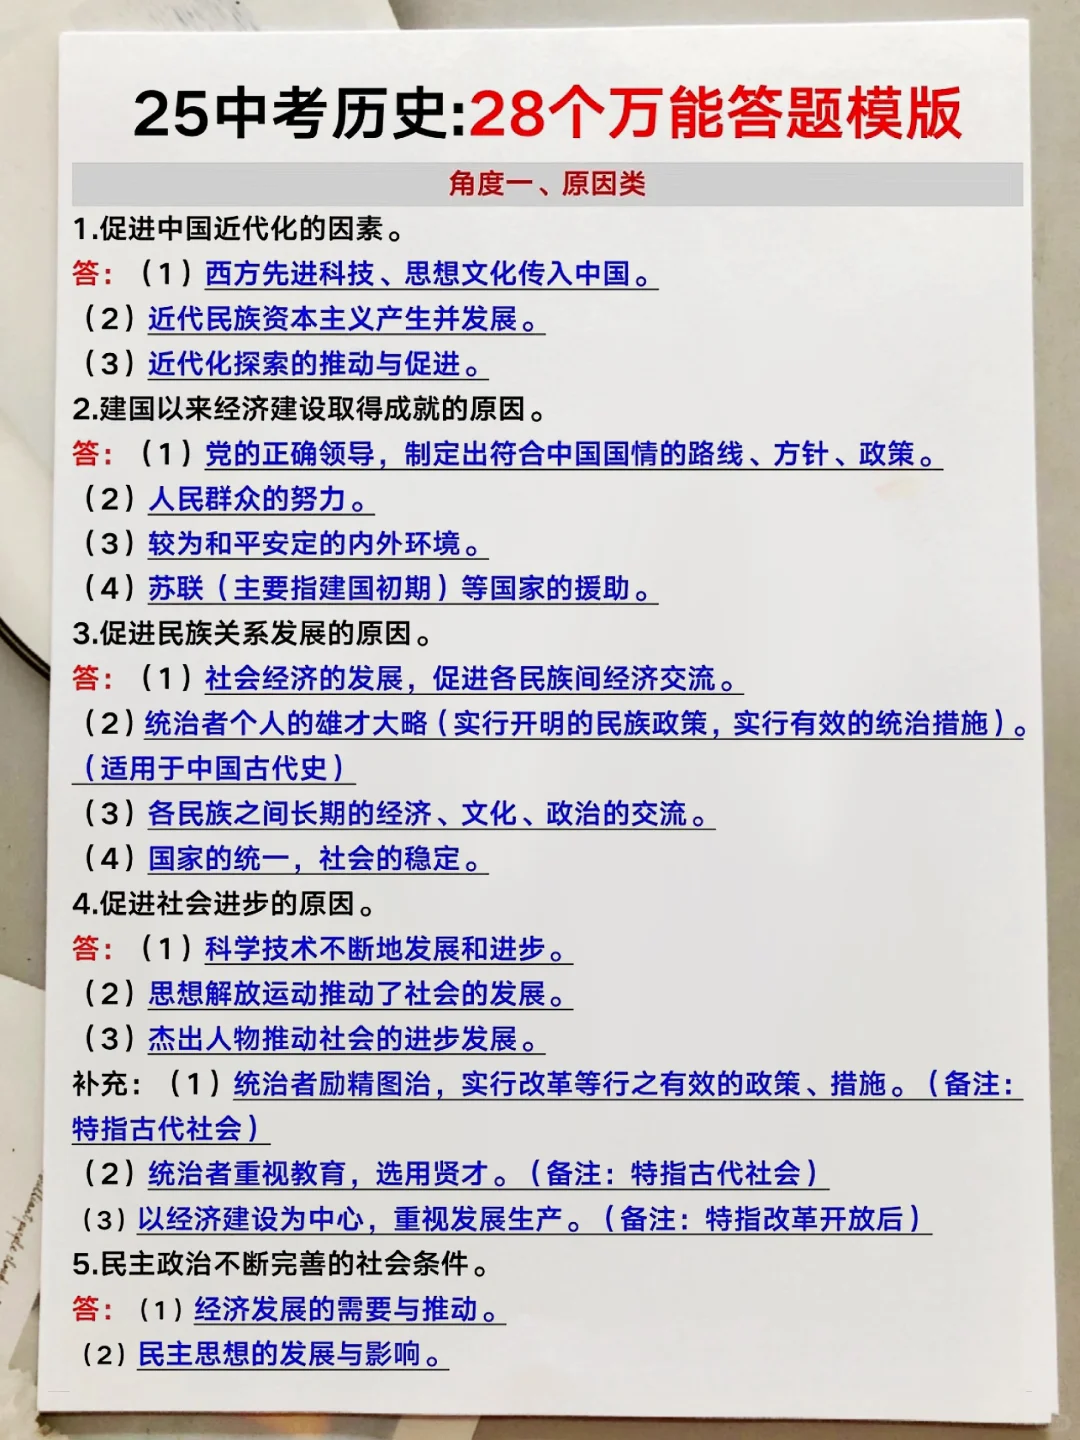 25中考历史:28个万能答题模版
角度一、原因类
1.促进中国近代化的因素。
答：（1）西方先进科技、思想文化传入中国。
（2）近代民族资本主义产生并发展。
（3）近代化探索的推动与促进。
2.建国以来经济建设取得成就的原因。
答：（1）党的正确领导，制定出符合中国国情的路线、方针、政策。
（2）人民群众的努力。
（3）较为和平安定的内外环境。
（4）苏联（主要指建国初期）等国家的援助。
3.促进民族关系发展的原因。
答：（1）社会经济的发展，促进各民族间经济交流。
（2）统治者个人的雄才大略（实行开明的民族政策，实行有效的统治措施）。
（适用于中国古代史）
（3）各民族之间长期的经济、文化、政治的交流。
（4）国家的统一，社会的稳定。
4.促进社会进步的原因。
答：（1）科学技术不断地发展和进步。
（2）思想解放运动推动了社会的发展。
（3）杰出人物推动社会的进步发展。
补充：（1）统治者励精图治，实行改革等行之有效的政策、措施。（备注：
特指古代社会）
（2）统治者重视教育，选用贤才。（备注：特指古代社会）
（3）以经济建设为中心，重视发展生产。（备注：特指改革开放后）
5.民主政治不断完善的社会条件。
答：（1）经济发展的需要与推动。
（2）民主思想的发展与影响。